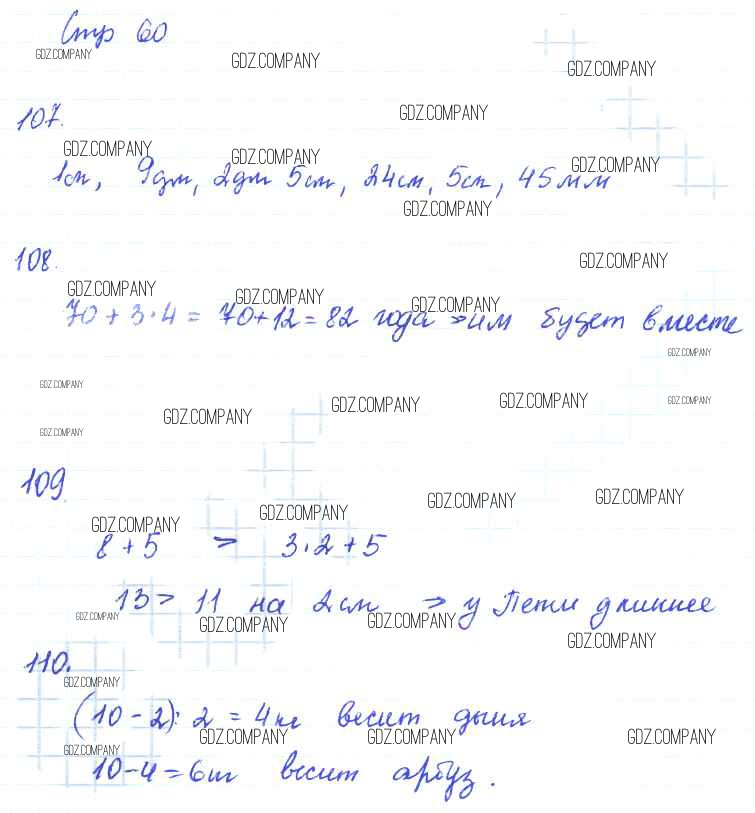 Стр 60
GDZ.COMPANY GDZ.COMPANY GDZ.COMPANY
107. GDZ.COMPANY
GDZ.COMPANY GDZ.COMPANY GDZ.COMPANY
1м, 9дм, 2дм 5см, 24см, 5см, 45мм
GDZ.COMPANY
108. GDZ.COMPANY
GDZ.COMPANY GDZ.COMPANY GDZ.COMPANY
70 + 3·4 = 70+12 = 82 года => им будет вместе
GDZ.COMPANY
GDZ.COMPANY GDZ.COMPANY GDZ.COMPANY GDZ.COMPANY GDZ.COMPANY
GDZ.COMPANY
109
GDZ.COMPANY GDZ.COMPANY GDZ.COMPANY GDZ.COMPANY
8 + 5 > 3·2 + 5
13 > 11 на 2см => у Пети длиннее
GDZ.COMPANY GDZ.COMPANY GDZ.COMPANY GDZ.COMPANY
110.
GDZ.COMPANY
(10 - 2) : 2 = 4кг весит дыня
GDZ.COMPANY GDZ.COMPANY GDZ.COMPANY GDZ.COMPANY
10-4=6кг весит арбуз.